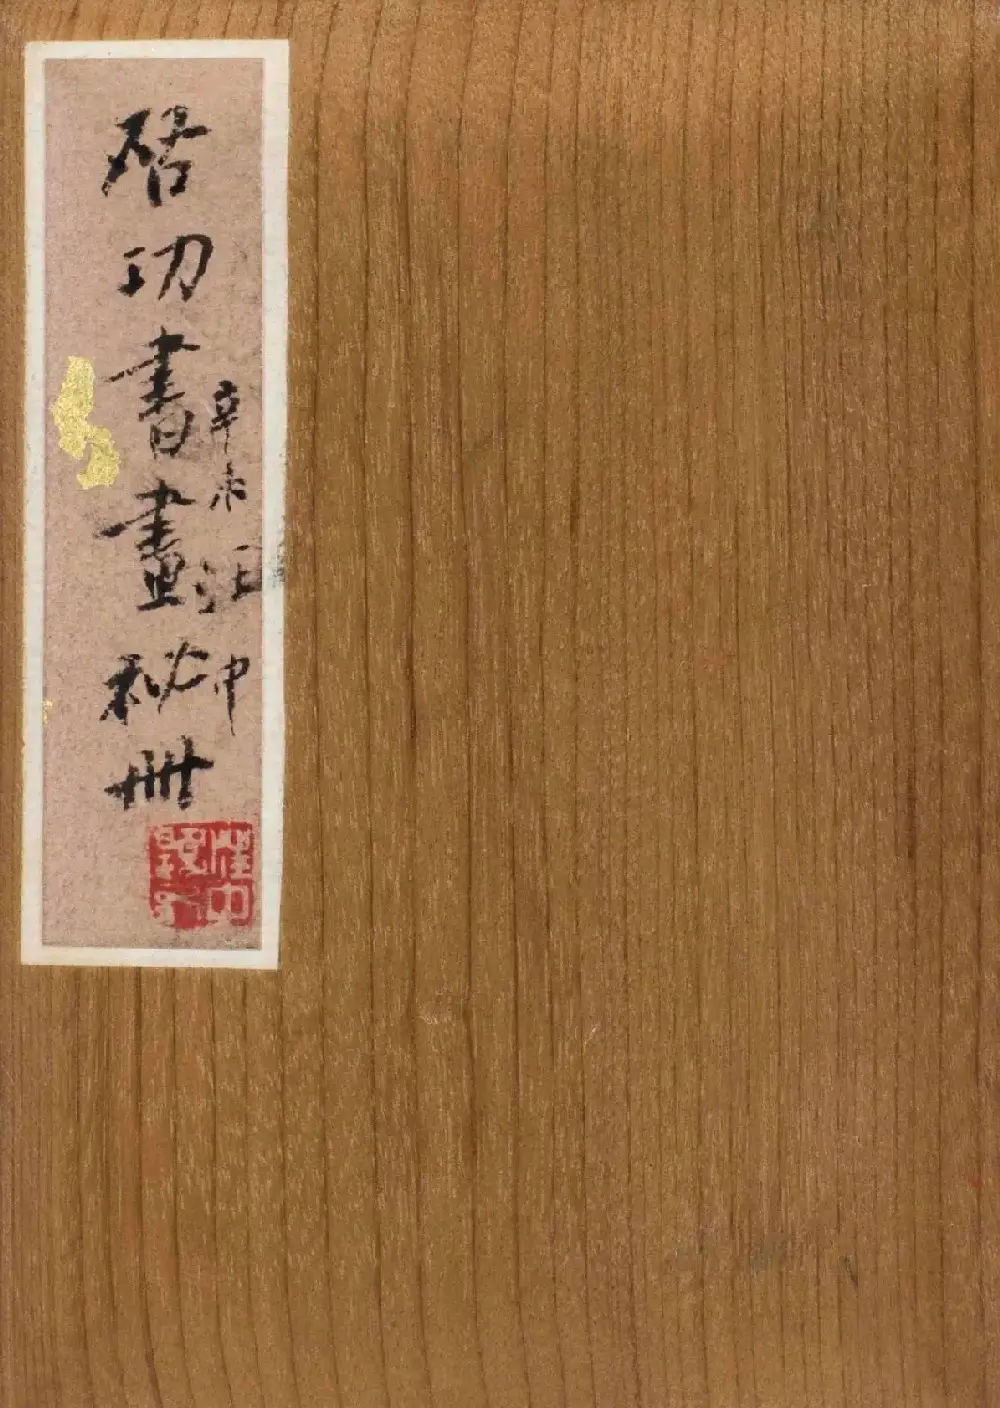 啟功書畫秘冊
辛未汪中